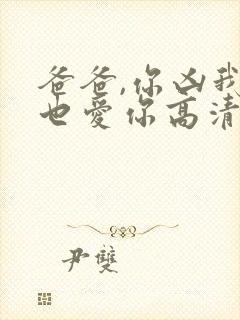 爸爸,你凶我
也爱你高清
尹雙